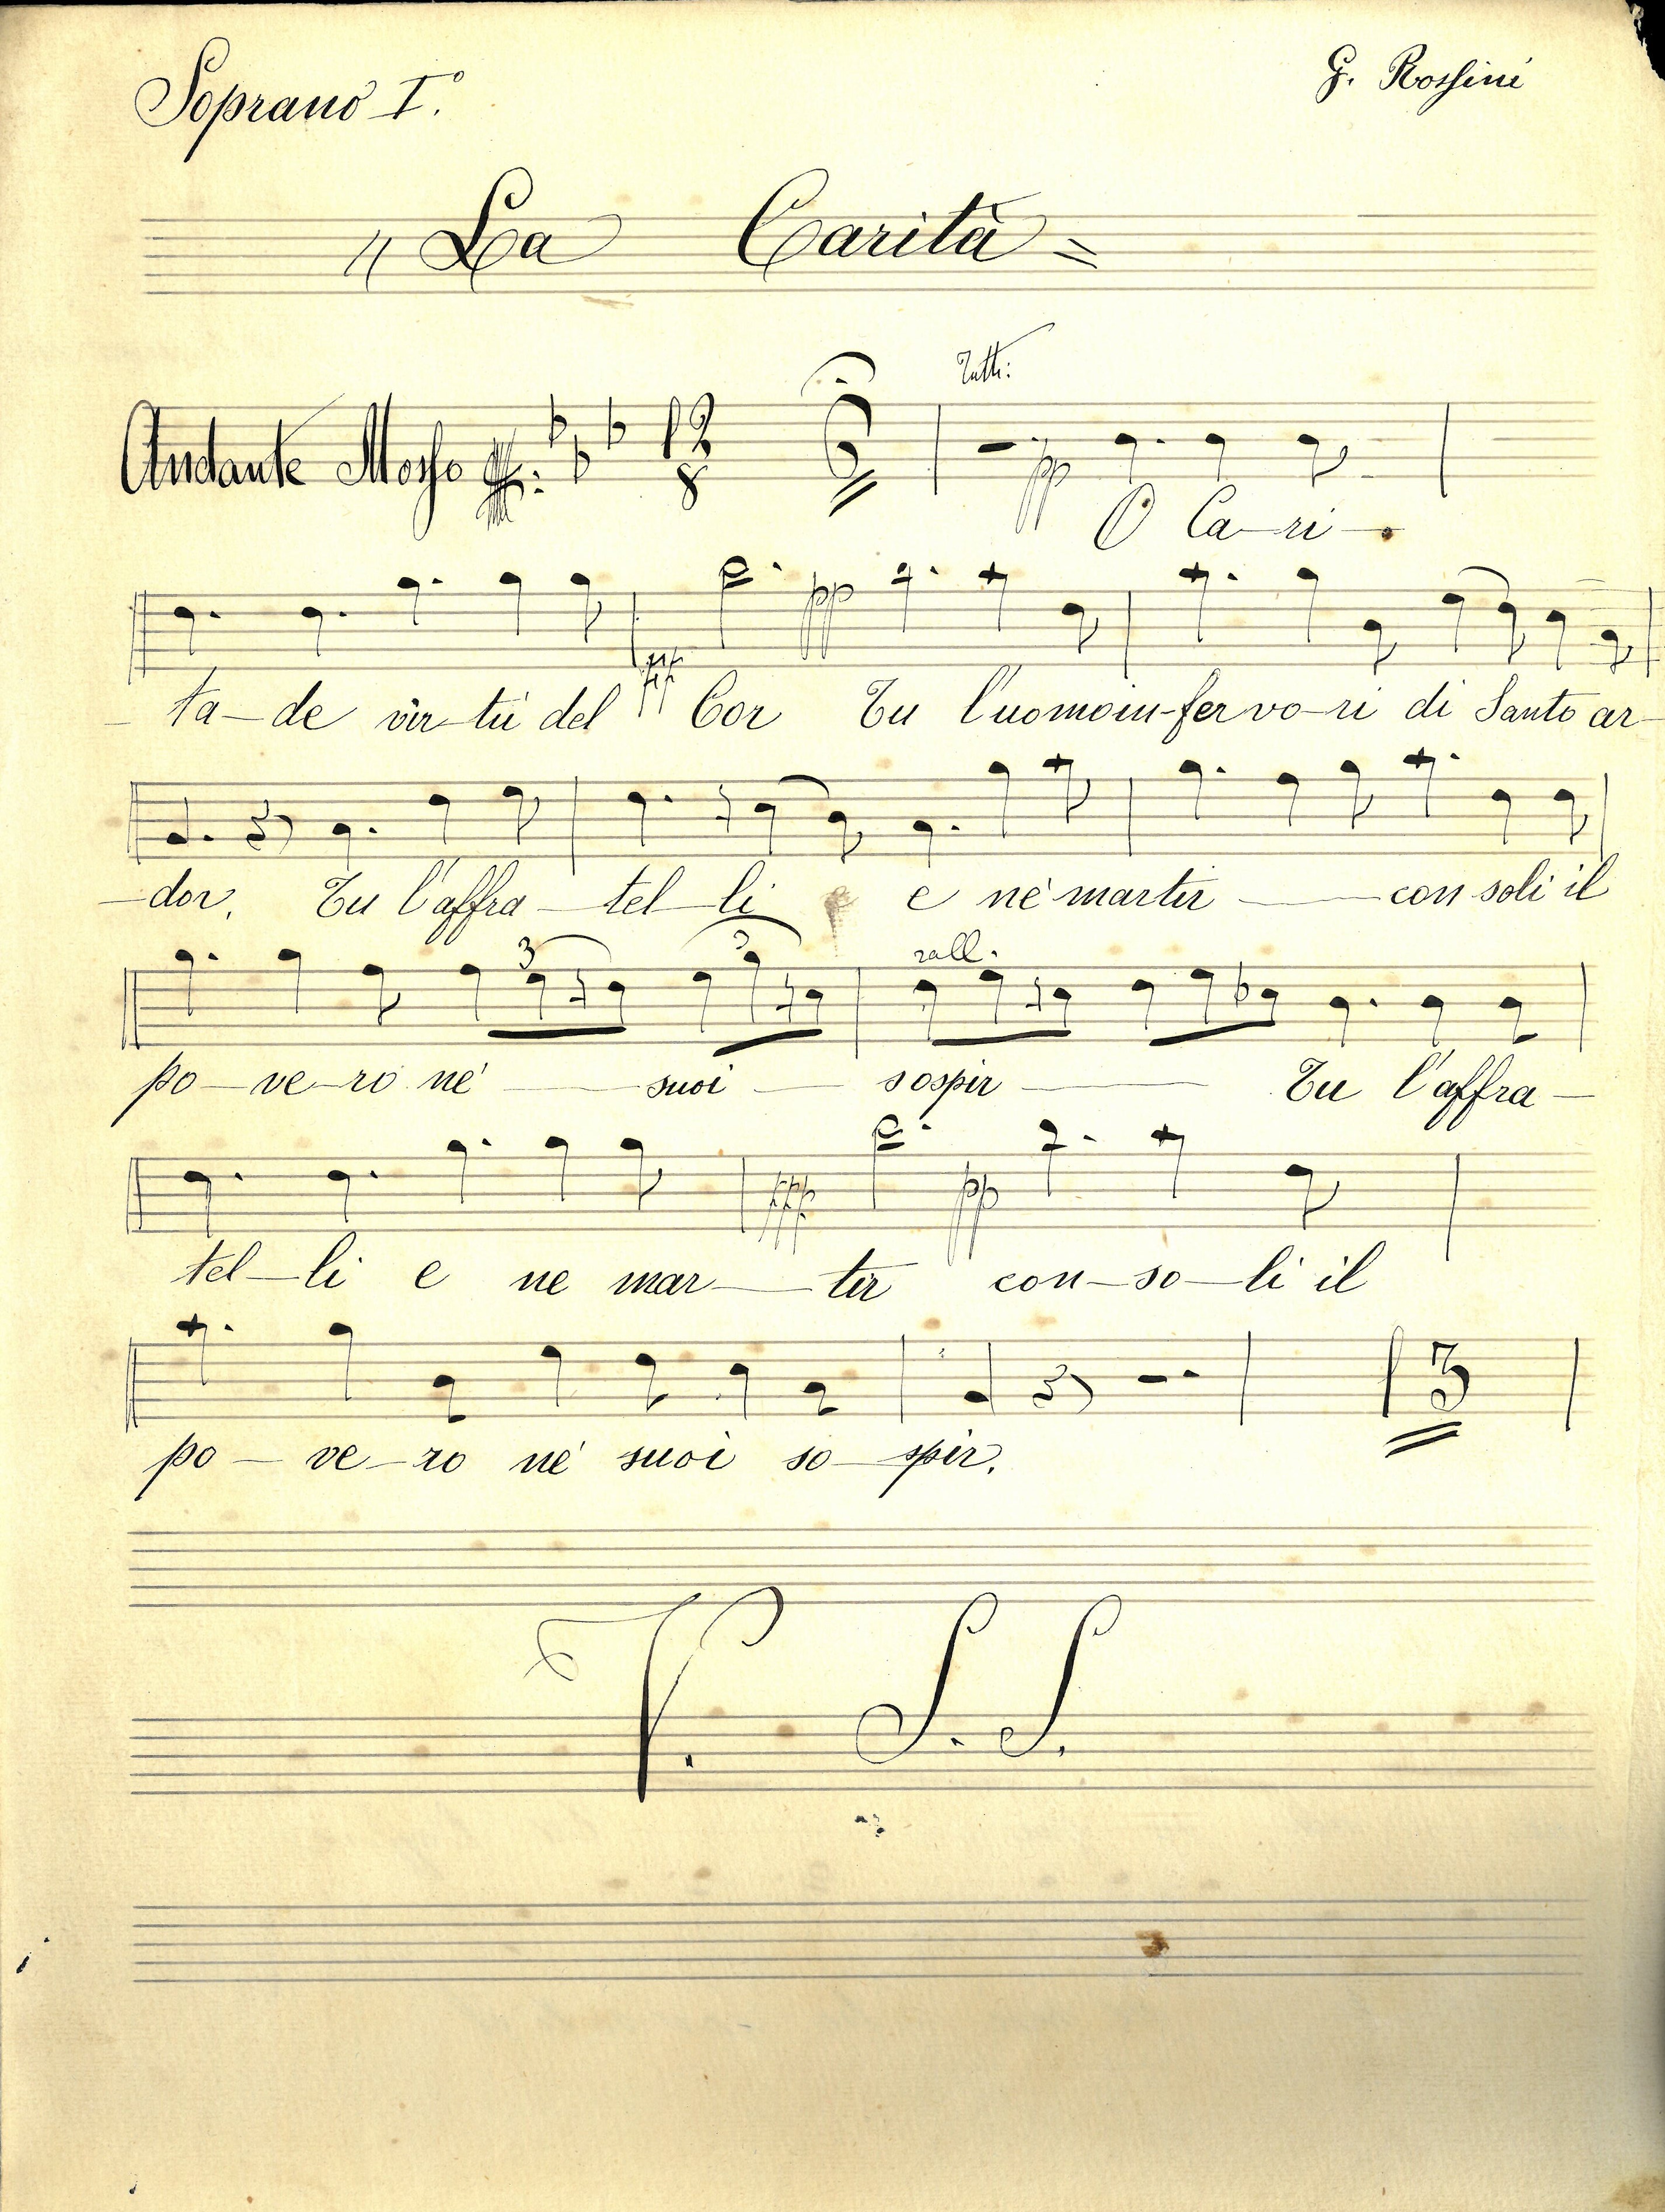 Soprano I.°
G. Rossini
"La Carità"
Tutti:
Andante Mosso 12 8 6
pp
O Ca-ri-
-ta-de vir-tù del fff Cor pp Tu l'uomoin-fervo-ri di Santo ar-
-dor. Tu l'affra-tel-li e né martir — consoli il
3 3 rall.
po-ve-ro né — suoi — sospir — Tu l'affra-
fff pp
tel-li e ne mar-tir con-so-li il
3
po-ve-ro né suoi so-spir.
V. S. S.